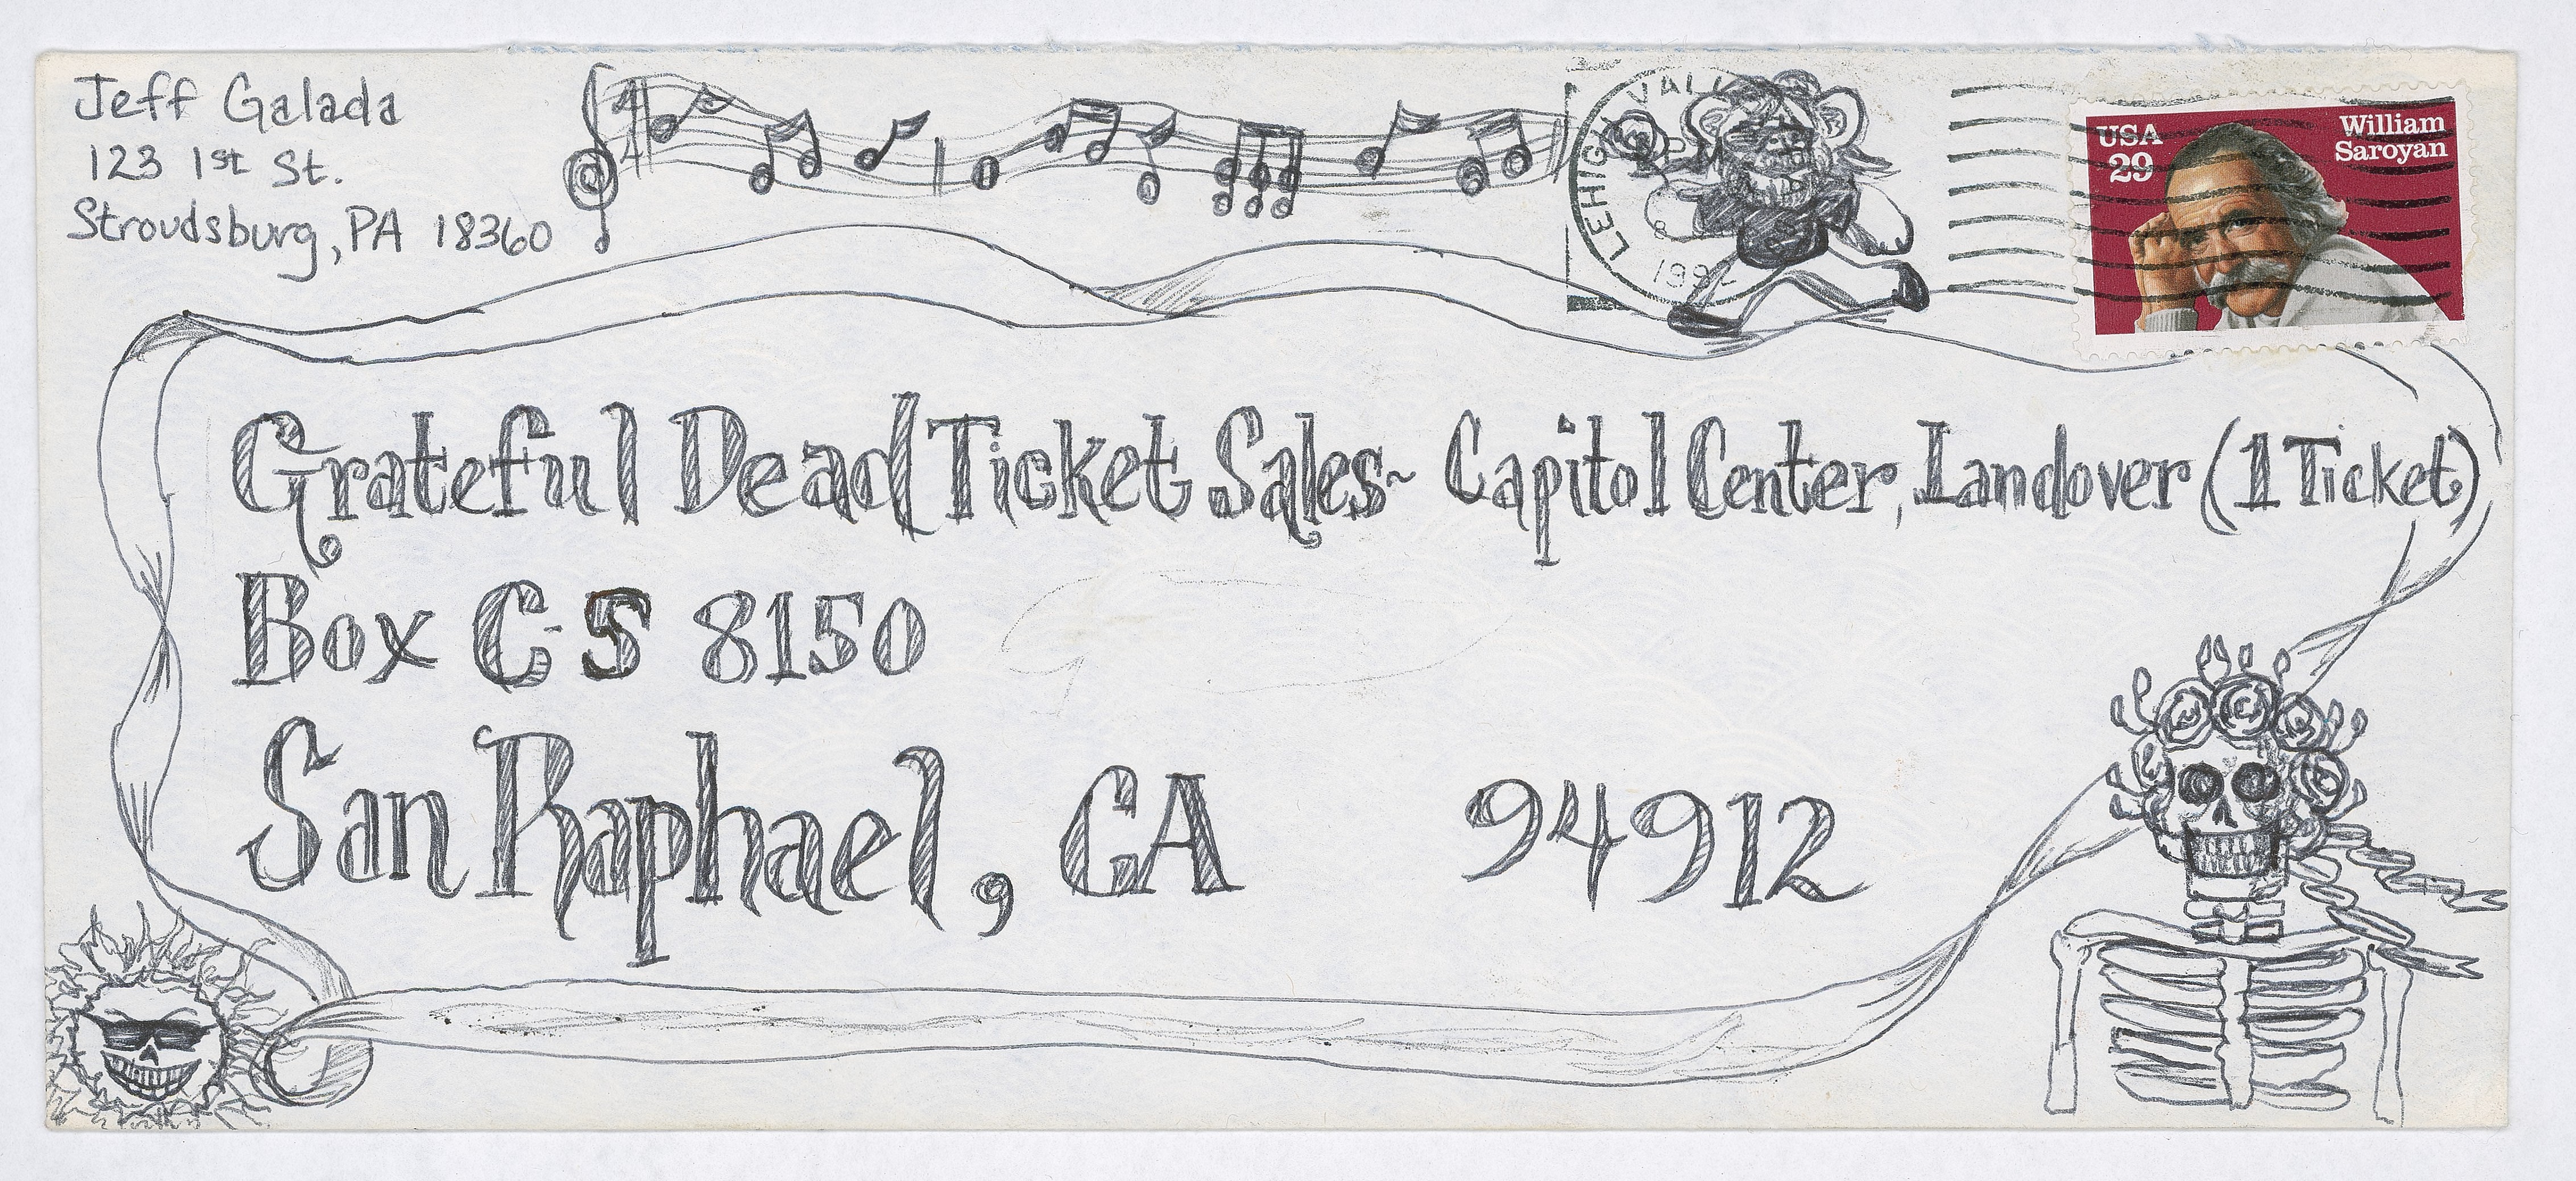 Jeff Galada
123 1st St.
Stroudsburg, PA 18360
4
4
LEHIGH VALL
PM
8
1992
USA
29
William
Saroyan
Grateful Dead Ticket Sales~ Capitol Center, Landover (1 Ticket)
Box C-S 8150
San Raphael, CA 94912